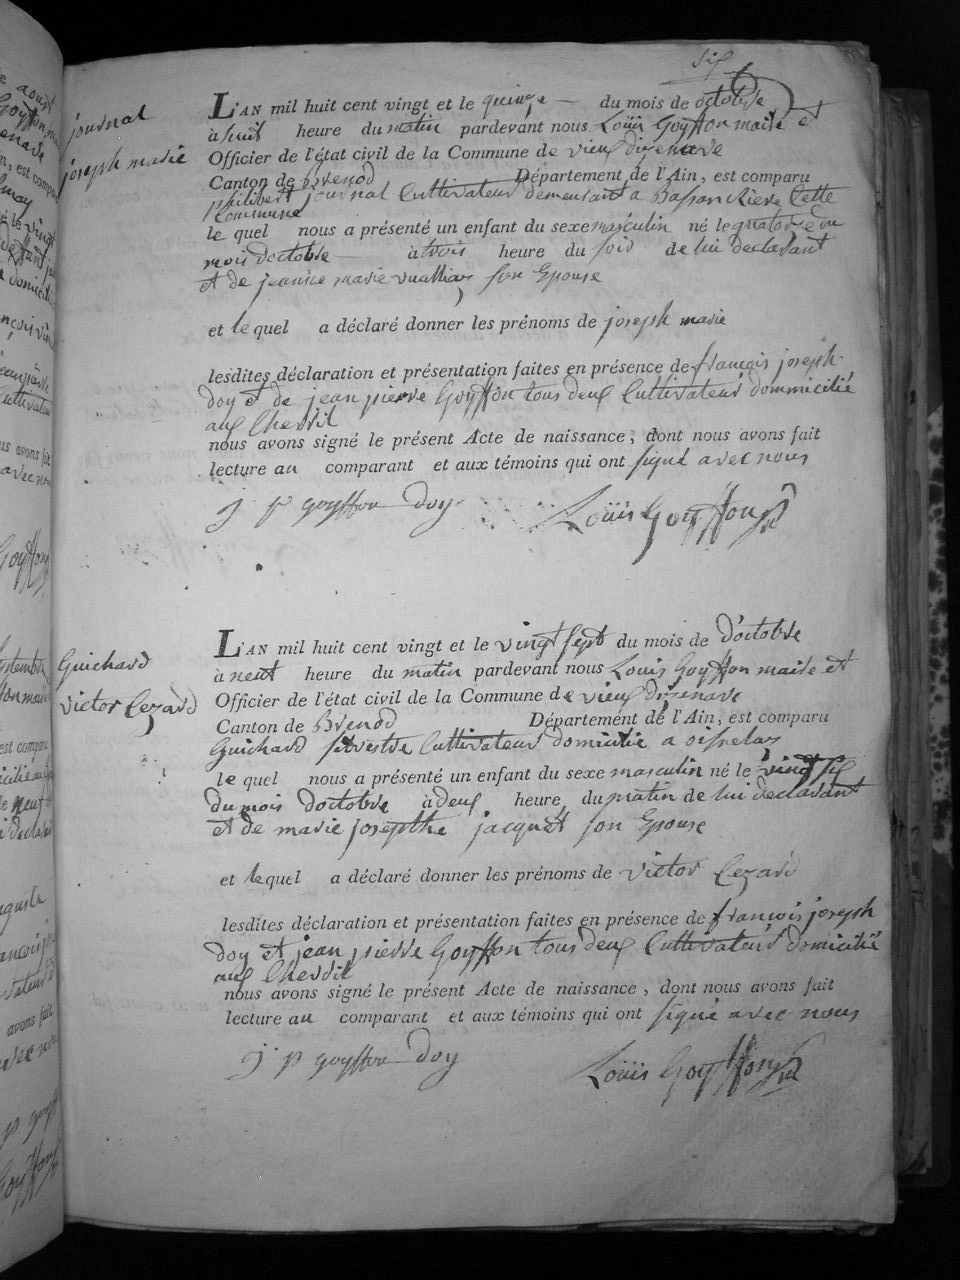 six
journal
joseph marie
L'AN mil huit cent vingt et le quinze du mois de octobre
à huit heure du matin pardevant nous Louis Goyffon maire et
Officier de l'état civil de la Commune de vieux dizenave
Canton de Brenod Département de l'Ain, est comparu
philibert journal Cultivateur demeurant a Bassan Riere Cette
Commune
le quel nous a présenté un enfant du sexe masculin né le quatorze du
mois doctobre à trois heure du soir de lui declarant
et de jeanne marie vuallias son Epouse
et le quel a déclaré donner les prénoms de joseph marie
lesdites déclaration et présentation faites en présence de françois joseph
doy et de jean pierre Goyffon tous deux Cultivateur dommicilié
aux Chevril
nous avons signé le présent Acte de naissance, dont nous avons fait
lecture au comparant et aux témoins qui ont signé avec nous
j p goyffon doy Louis Goyffon
Guichard
victor Cezard
L'AN mil huit cent vingt et le vingt sept du mois de d'octobre
à neuf heure du matin pardevant nous Louis Goyffon maire et
Officier de l'état civil de la Commune de vieux dizenave
Canton de Brenod Département de l'Ain, est comparu
Guichard silvestre Cultivateur domicilie a oisselaz
le quel nous a présenté un enfant du sexe masculin né le vingt six
du mois doctobre à deux heure du matin de lui declarant
et de marie josepthe jacquet son Epouse
et le quel a déclaré donner les prénoms de victor Cezard
lesdites déclaration et présentation faites en présence de francois joseph
doy et jean pierre Goyffon tous deux Cultivateur domicilié
aux Chevril
nous avons signé le présent Acte de naissance, dont nous avons fait
lecture au comparant et aux témoins qui ont signé avec nous
j p goyffon doy Louis Goyffon